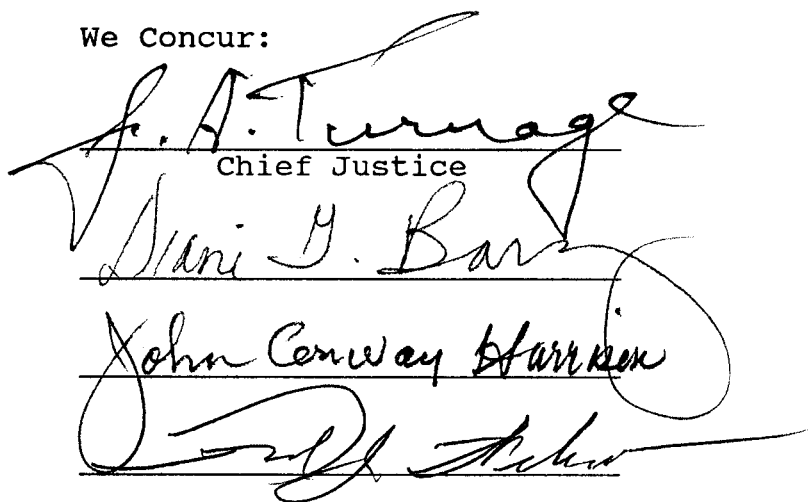 We Concur:
J. A. Turnage
Chief Justice
Diane G. Barz
John Conway Harrison